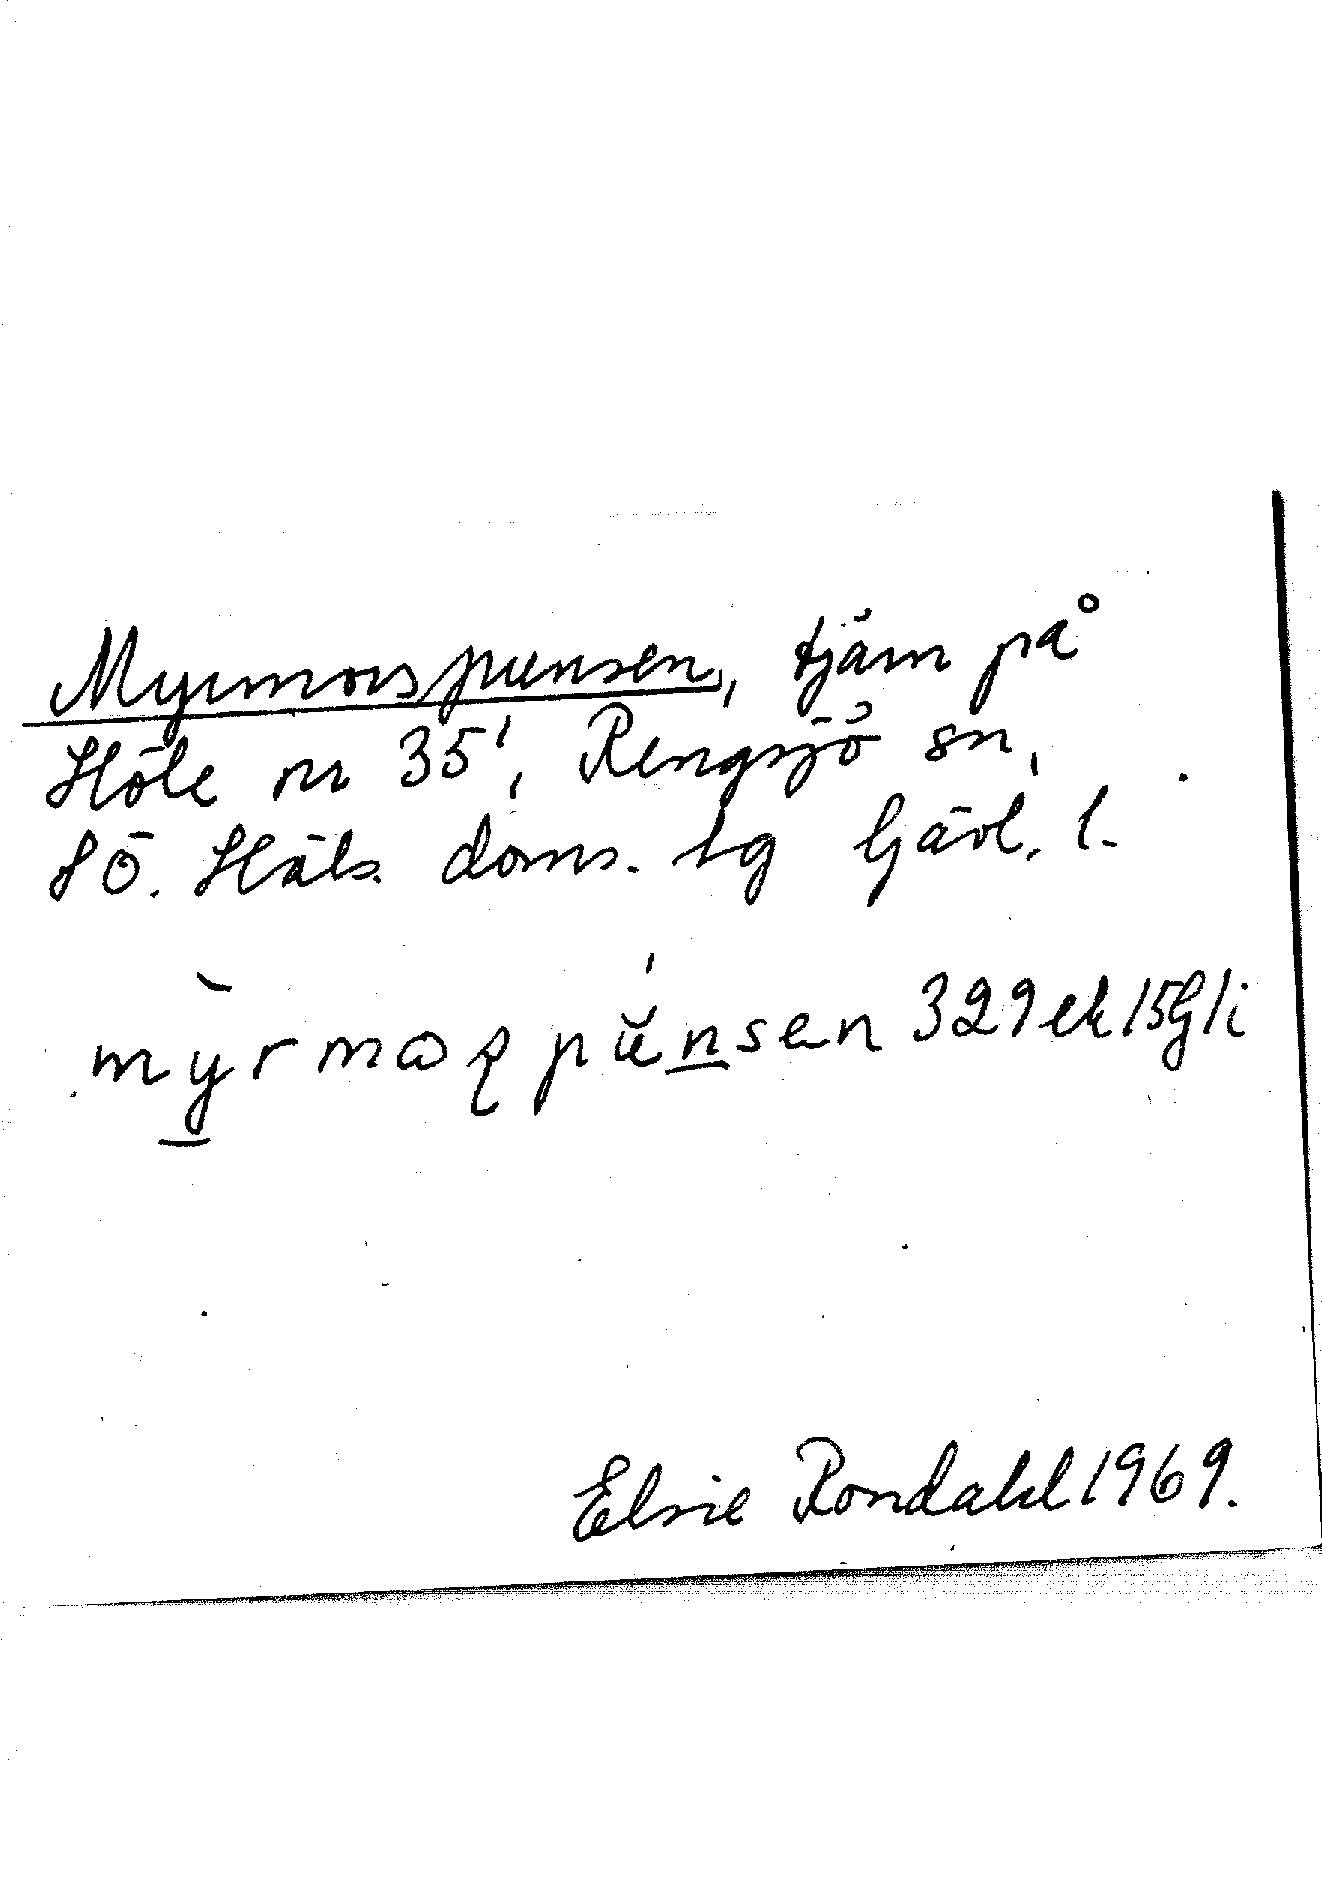 Myrmorspunsen, tjärn på
Höle nr 35', Rengsjö sn,
SÖ. Häls. doms. tg Gävl. l.
mỳrmaʂpŭnsen 329 ek 15G1i
Elsie Rondahl 1969.